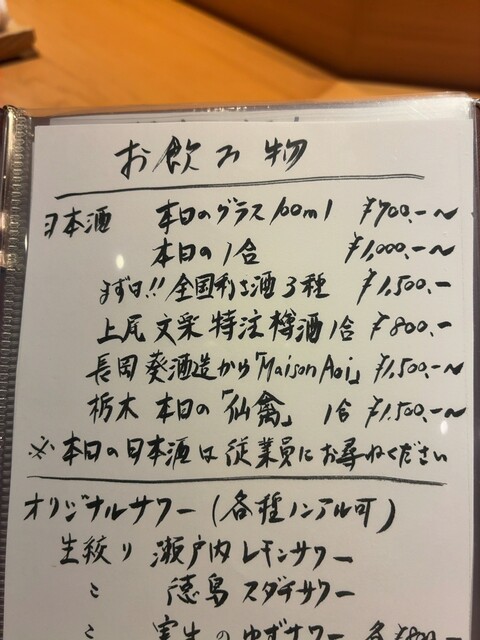 お飲み物
日本酒 本日のグラス100ml ¥700.-〜
本日の1合 ¥1,000.-〜
まずは!! 全国利き酒3種 ¥1,500.-
上尾 文楽 特注樽酒1合 ¥800.-
長岡 葵酒造から「Maison Aoi」 ¥1,500.-〜
栃木 本日の「仙禽」 1合 ¥1,500.-〜
※本日の日本酒は従業員にお尋ねください
オリジナルサワー(各種ノンアル可)
生絞り 瀬戸内レモンサワー
〃 徳島スダチサワー
〃 実生のゆずサワー 各¥800.-